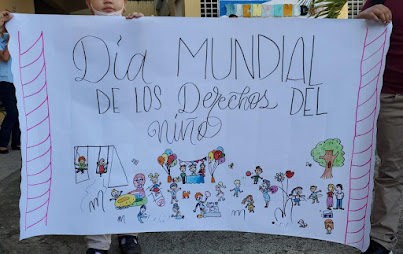 Día MUNDIAL
DE LOS Derechos DEL
niño